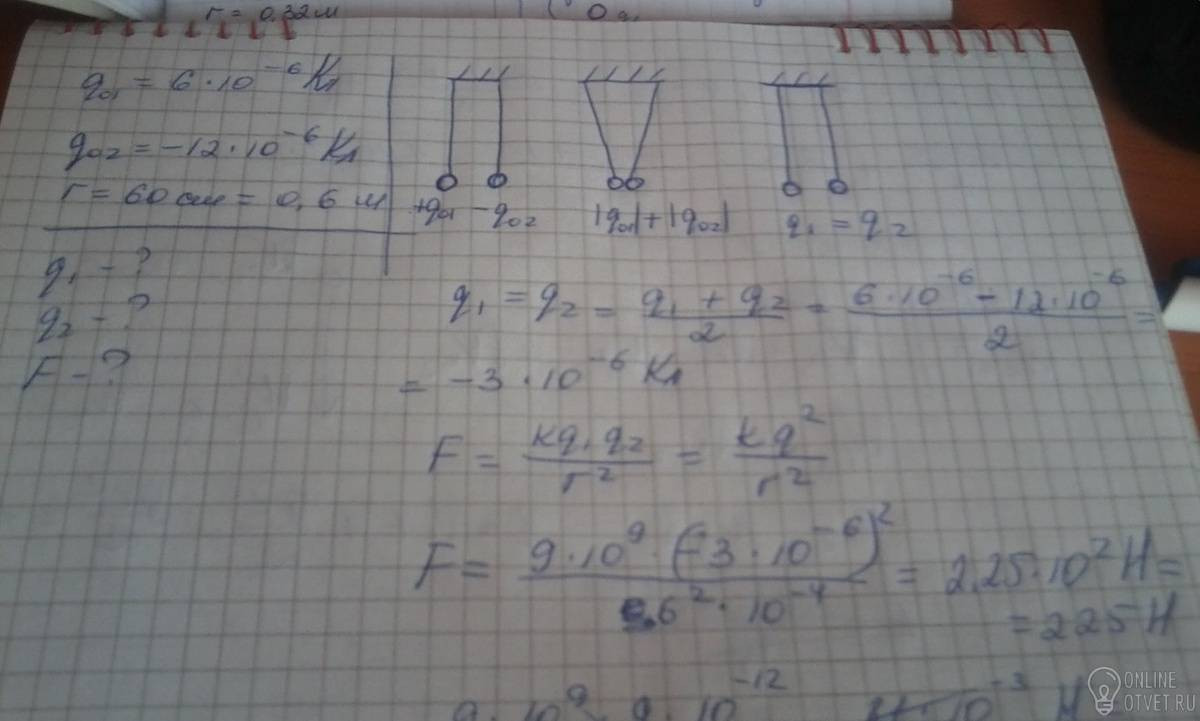 r = 0,32м
q₀₁ = 6·10⁻⁶ Кл
q₀₂ = -12·10⁻⁶ Кл
r = 60 см = 0,6 м
+q₀₁ -q₀₂ |q₀₁|+|q₀₂| q₁ = q₂
q₁ - ?
q₂ - ?
F - ?
q₁ = q₂ = (q₁ + q₂)/2 = (6·10⁻⁶ - 12·10⁻⁶)/2 =
= -3·10⁻⁶ Кл
F = kq₁q₂/r² = kq²/r²
F = 9·10⁹·(-3·10⁻⁶)²/6²·10⁻⁴ = 2,25·10² Н =
= 225 Н
9·10⁹·9·10⁻¹² 10⁻³ Н
ONLINE
OTVET.RU